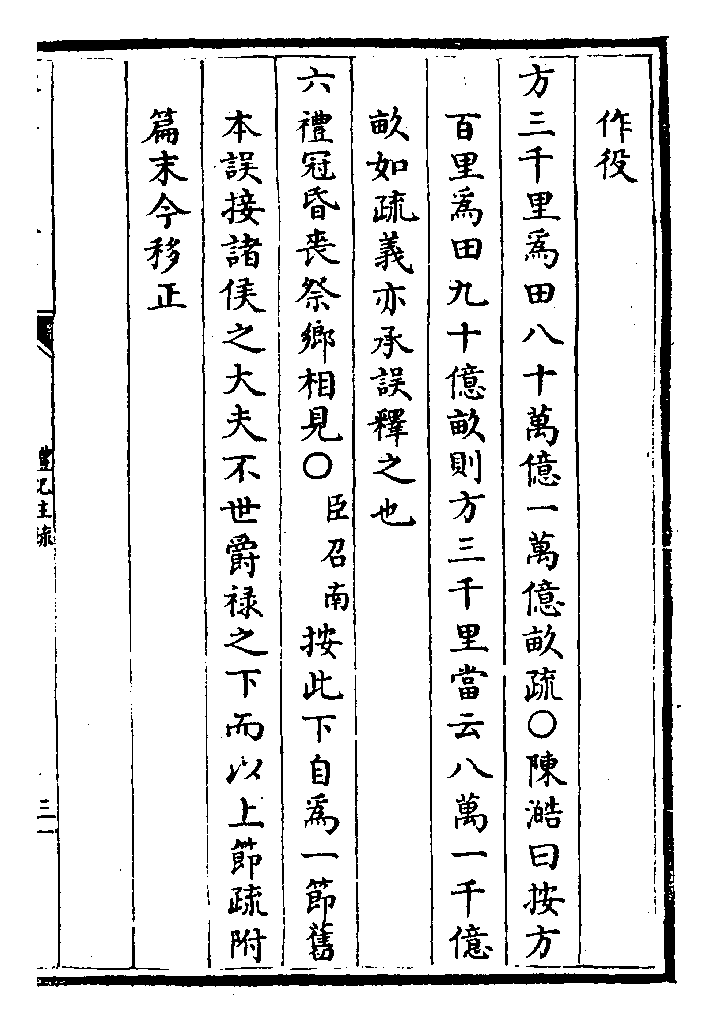 作役
方三千里爲田八十萬億一萬億畝疏〇陳澔曰按方
百里爲田九十億畝則方三千里當云八萬一千億
畝如疏義亦承誤釋之也
六禮冠昏喪祭鄉相見〇臣召南按此下自爲一節舊
本誤接諸侯之大夫不世爵祿之下而以上節疏附
篇末今移正
禮記注疏
三一